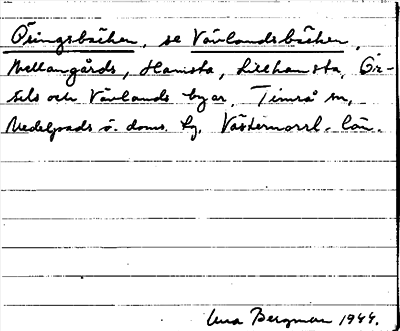 Öringsbäcken, se Vävlandsbäcken,
Mellangårds, Hamsta, Lillhamsta, Ör-
sils och Vävlands byar, Timrå sn,
Medelpads ö. doms. tg. Västernorrl. län.
Bergman 1944.